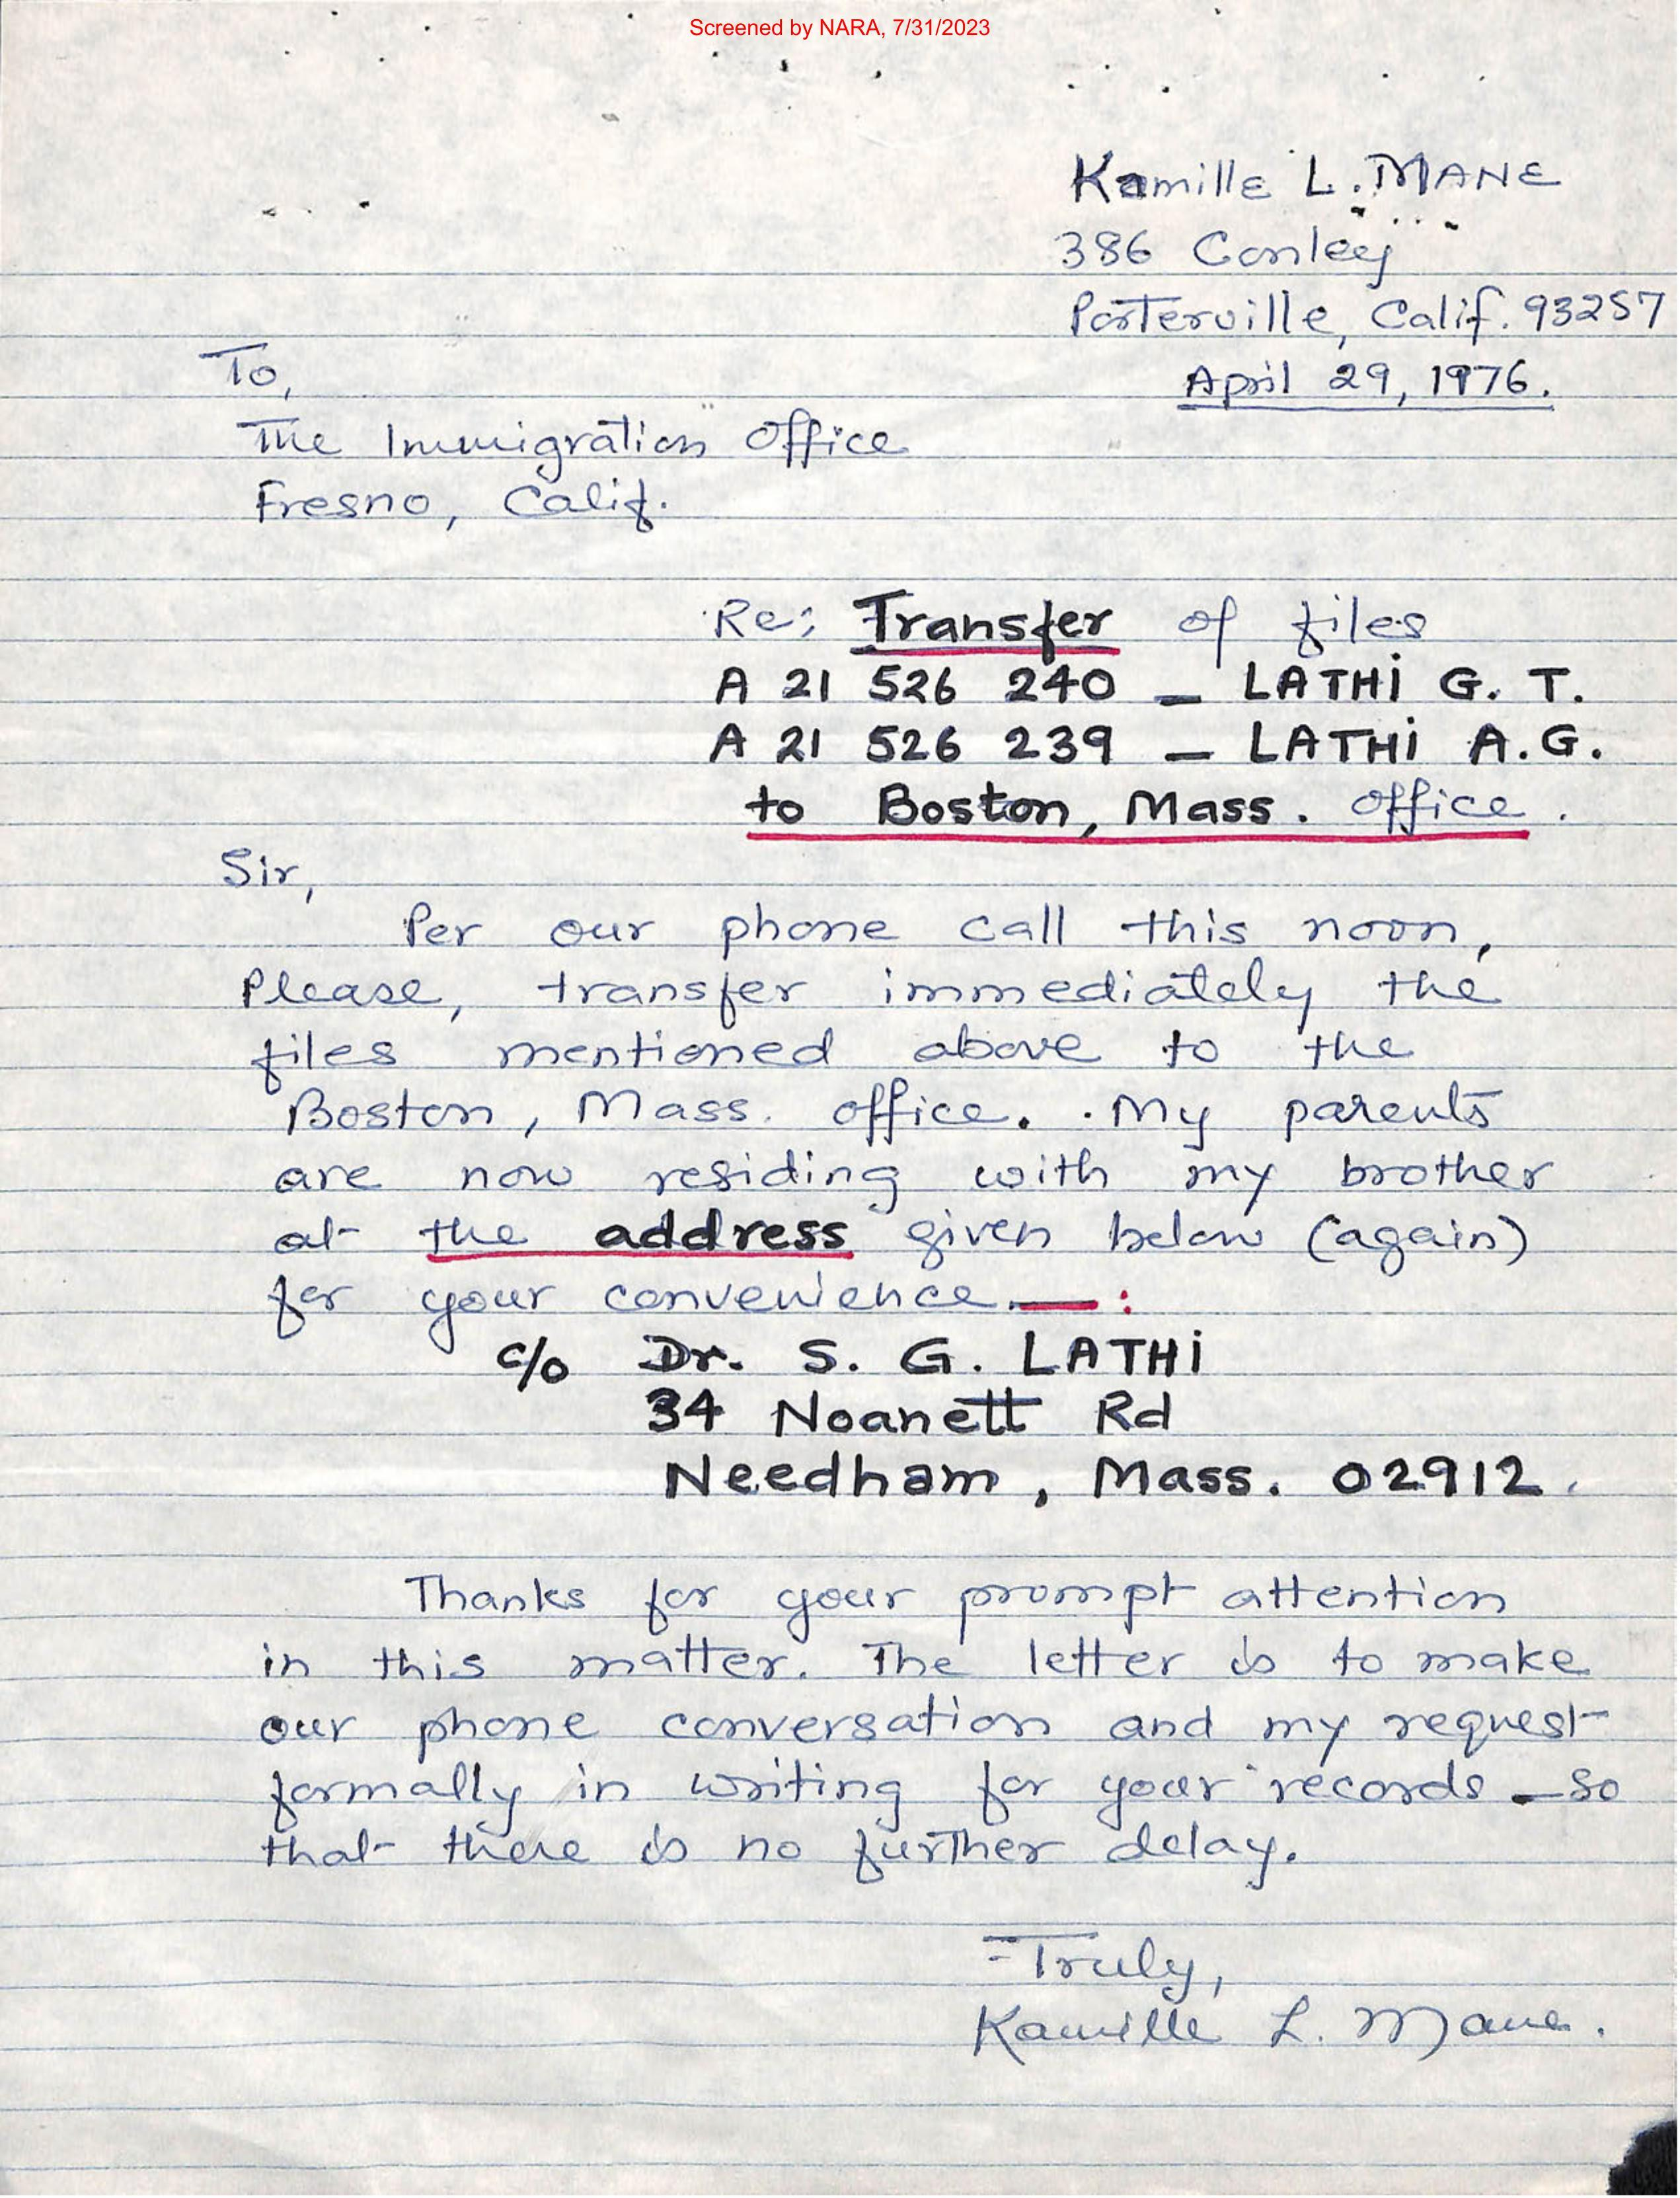 Screened by NARA, 7/31/2023
Kamille L. MANE
386 Conley
Porterville, Calif. 93257
April 29, 1976.
To,
The Immigration Office
Fresno, Calif.
Re: Transfer of files
A 21 526 240 – LATHI G. T.
A 21 526 239 – LATHI A.G.
to Boston, Mass. Office.
Sir,
Per our phone call this noon,
Please, transfer immediately the
files mentioned above to the
Boston, Mass. office. My parents
are now residing with my brother
at the address given below (again)
for your convenience — :
c/o Dr. S. G. LATHI
34 Noanett Rd
Needham, Mass. 02912.
Thanks for your prompt attention
in this matter. The letter is to make
our phone conversation and my request
formally in writing for your records – so
that there is no further delay.
Truly,
Kamille L. Mane.